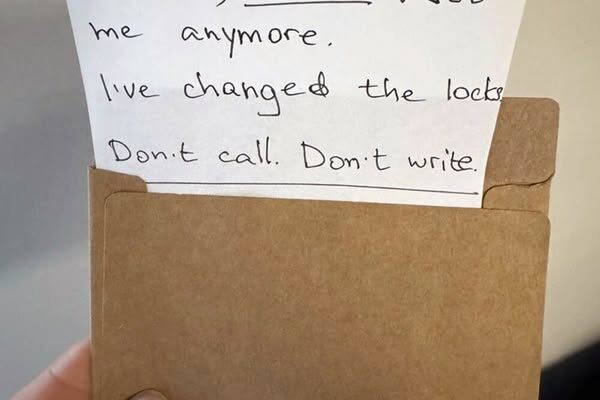 me anymore.
I've changed the locks.
Don't call. Don't write.